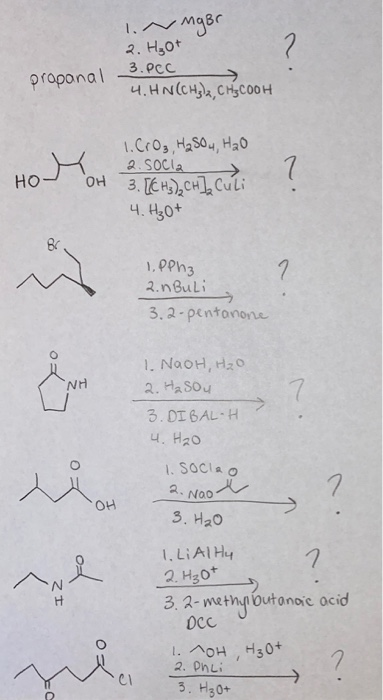 1. MgBr
2. H₃O⁺
3. PCC
propanal
4. HN(CH₃)₂, CH₃COOH
?
1. CrO₃, H₂SO₄, H₂O
2. SOCl₂
HO OH
3. [(CH₃)₂CH]₂CuLi
4. H₃O⁺
?
Br
1. PPh₃
2. nBuLi
3. 2-pentanone
?
O
NH
1. NaOH, H₂O
2. H₂SO₄
3. DIBAL-H
4. H₂O
?
O
OH
1. SOCl₂ O
2. NaO
3. H₂O
?
O
N
H
1. LiAlH₄
2. H₃O⁺
3. 2-methylbutanoic acid
DCC
?
O
O Cl
1. OH, H₃O⁺
2. PhLi
3. H₃O⁺
?